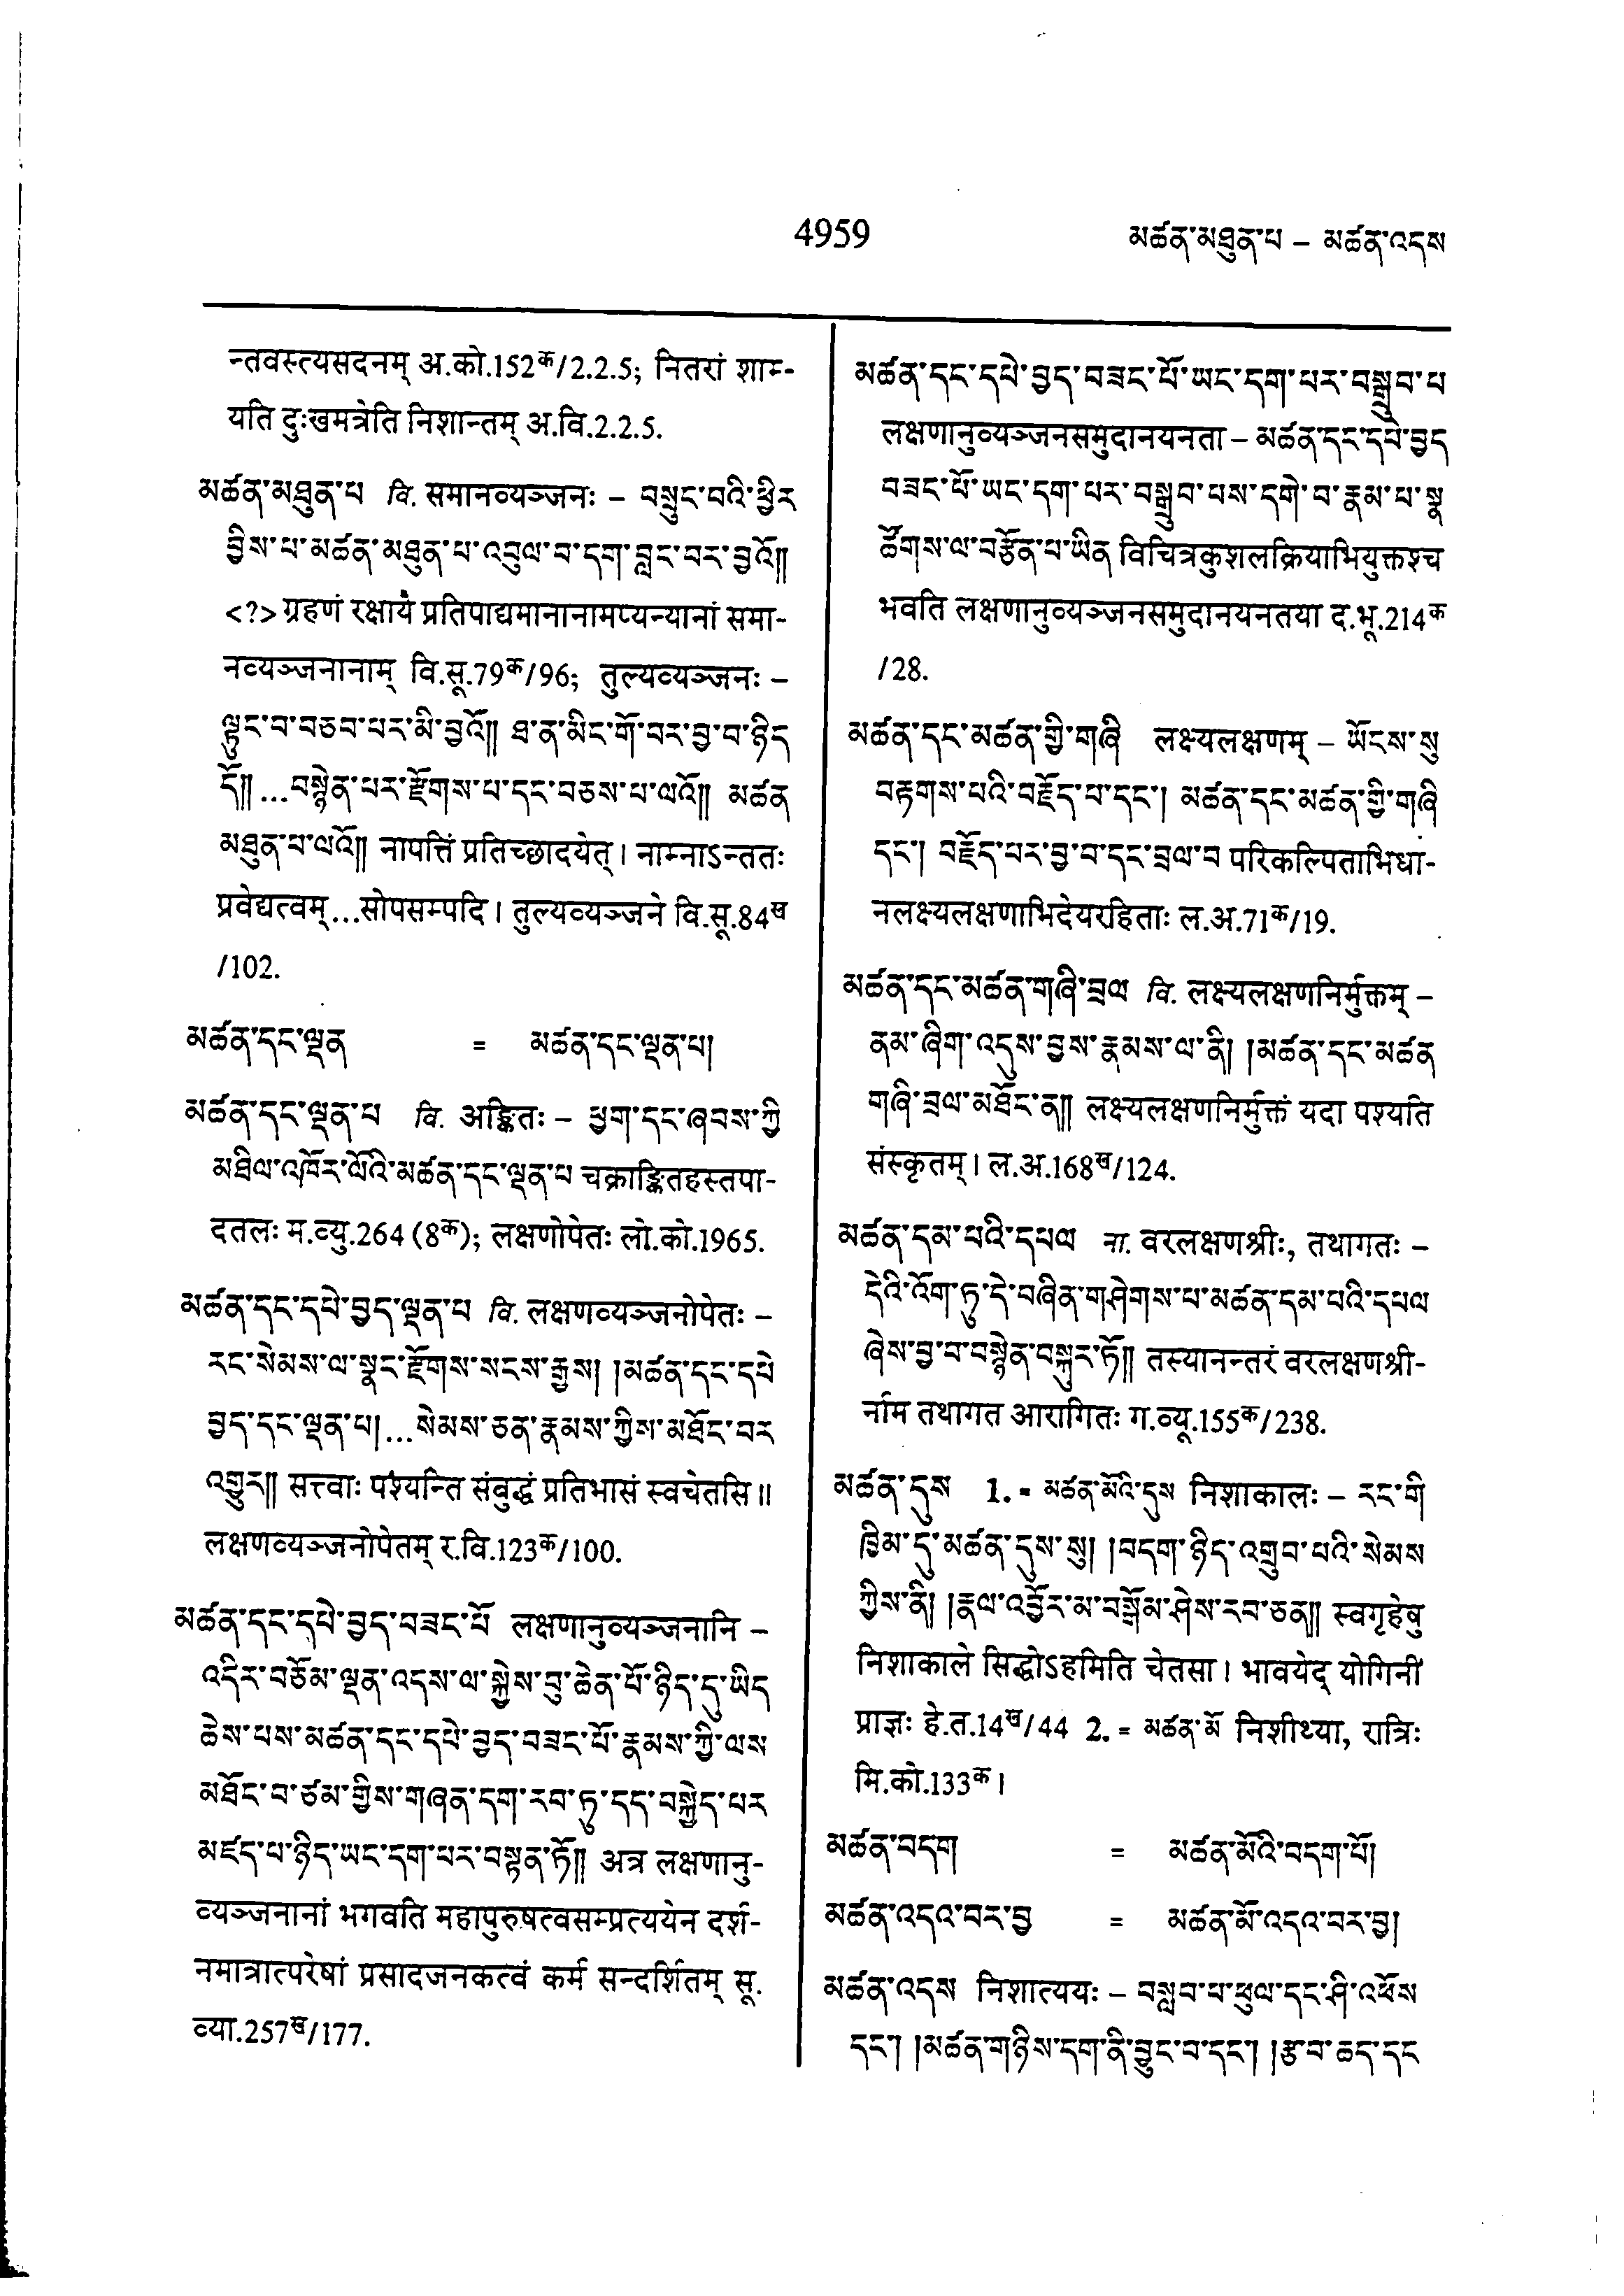 4959
མཚན་མཐུན་པ – མཚན་འདས
न्तवस्त्यसदनम् अ.को.152क/2.2.5; नितरां शाम्-
यति दुःखमत्रेति निशान्तम् अ.वि.2.2.5.
མཚན་མཐུན་པ वि. समानव्यञ्जनः – བསྲུང་བའི་ཕྱིར
བྱིས་པ་མཚན་མཐུན་པ་འབུལ་བ་དག་བླང་བར་བྱའོ།།
<?> ग्रहणं रक्षायै प्रतिपाद्यमानानामप्यन्यानां समा-
नव्यञ्जनानाम् वि.सू.79क/96; तुल्यव्यञ्जनः –
ལྟུང་བ་བཅབ་པར་མི་བྱའོ།། ཐ་ན་མིང་གོ་བར་བྱ་བ་ཉིད
དོ།། ...བསྙེན་པར་རྫོགས་པ་དང་བཅས་པ་ལའོ།། མཚན
མཐུན་པ་ལའོ།། नापत्तिं प्रतिच्छादयेत्। नाम्नाऽन्ततः
प्रवेद्यत्वम्...सोपसम्पदि। तुल्यव्यञ्जने वि.सू.84ख
/102.
མཚན་དང་ལྡན = མཚན་དང་ལྡན་པ།
མཚན་དང་ལྡན་པ वि. अङ्कितः – ཕྱག་དང་ཞབས་ཀྱི
མཐིལ་འཁོར་ལོའི་མཚན་དང་ལྡན་པ चक्राङ्कितहस्तपा-
दतलः म.व्यु.264 (8क); लक्षणोपेतः लो.को.1965.
མཚན་དང་དཔེ་བྱད་ལྡན་པ वि. लक्षणव्यञ्जनोपेतः –
རང་སེམས་ལ་སྣང་རྫོགས་སངས་རྒྱས། །མཚན་དང་དཔེ
བྱད་དང་ལྡན་པ།...སེམས་ཅན་རྣམས་ཀྱིས་མཐོང་བར
འགྱུར།། सत्त्वाः पश्यन्ति संबुद्धं प्रतिभासं स्वचेतसि॥
लक्षणव्यञ्जनोपेतम् र.वि.123क/100.
མཚན་དང་དཔེ་བྱད་བཟང་པོ लक्षणानुव्यञ्जनानि –
འདིར་བཅོམ་ལྡན་འདས་ལ་སྐྱེས་བུ་ཆེན་པོ་ཉིད་དུ་ཡིད
ཆེས་པས་མཚན་དང་དཔེ་བྱད་བཟང་པོ་རྣམས་ཀྱི་ལས
མཐོང་བ་ཙམ་གྱིས་གཞན་དག་རབ་ཏུ་དད་བསྐྱེད་པར
མཛད་པ་ཉིད་ཡང་དག་པར་བསྟན་ཏོ།། अत्र लक्षणानु-
व्यञ्जनानां भगवति महापुरुषत्वसम्प्रत्ययेन दर्श-
नमात्रात्परेषां प्रसादजनकत्वं कर्म सन्दर्शितम् सू.
व्या.257ख/177.
མཚན་དང་དཔེ་བྱད་བཟང་པོ་ཡང་དག་པར་བསྒྲུབ་པ
लक्षणानुव्यञ्जनसमुदानयनता – མཚན་དང་དཔེ་བྱད
བཟང་པོ་ཡང་དག་པར་བསྒྲུབ་པས་དགེ་བ་རྣམ་པ་སྣ
ཚོགས་ལ་བརྩོན་པ་ཡིན विचित्रकुशलक्रियाभियुक्तश्च
भवति लक्षणानुव्यञ्जनसमुदानयनतया द.भू.214क
/28.
མཚན་དང་མཚན་གྱི་གཞི लक्ष्यलक्षणम् – ཡོངས་སུ
བརྟགས་པའི་བརྗོད་པ་དང་། མཚན་དང་མཚན་གྱི་གཞི
དང་། བརྗོད་པར་བྱ་བ་དང་བྲལ་བ परिकल्पिताभिधा-
नलक्ष्यलक्षणाभिदेयरहिताः ल.अ.71क/19.
མཚན་དང་མཚན་གཞི་བྲལ वि. लक्ष्यलक्षणनिर्मुक्तम् –
ནམ་ཞིག་འདུས་བྱས་རྣམས་ལ་ནི། །མཚན་དང་མཚན
གཞི་བྲལ་མཐོང་ན།། लक्ष्यलक्षणनिर्मुक्तं यदा पश्यति
संस्कृतम्। ल.अ.168ख/124.
མཚན་དམ་པའི་དཔལ ना. वरलक्षणश्रीः, तथागतः –
དེའི་འོག་ཏུ་དེ་བཞིན་གཤེགས་པ་མཚན་དམ་པའི་དཔལ
ཞེས་བྱ་བ་བསྙེན་བསྐུར་ཏོ།། तस्यानन्तरं वरलक्षणश्री-
र्नाम तथागत आरागितः ग.व्यू.155क/238.
མཚན་དུས 1. = མཚན་མོའི་དུས निशाकालः – རང་གི
ཁྱིམ་དུ་མཚན་དུས་སུ། །བདག་ཉིད་འགྲུབ་པའི་སེམས
ཀྱིས་ནི། །རྣལ་འབྱོར་མ་བསྒོམ་ཤེས་རབ་ཅན།། स्वगृहेषु
निशाकाले सिद्धोऽहमिति चेतसा। भावयेद् योगिनीं
प्राज्ञः हे.त.14ख/44 2. = མཚན་མོ निशीथ्या, रात्रिः
मि.को.133क।
མཚན་བདག = མཚན་མོའི་བདག་པོ།
མཚན་འདའ་བར་བྱ = མཚན་མོ་འདའ་བར་བྱ།
མཚན་འདས निशात्ययः – བསླབ་པ་ཕུལ་དང་ཤི་འཕོས
དང་། །མཚན་གཉིས་དག་ནི་བྱུང་བ་དང་། །རྩ་བ་ཆད་དང